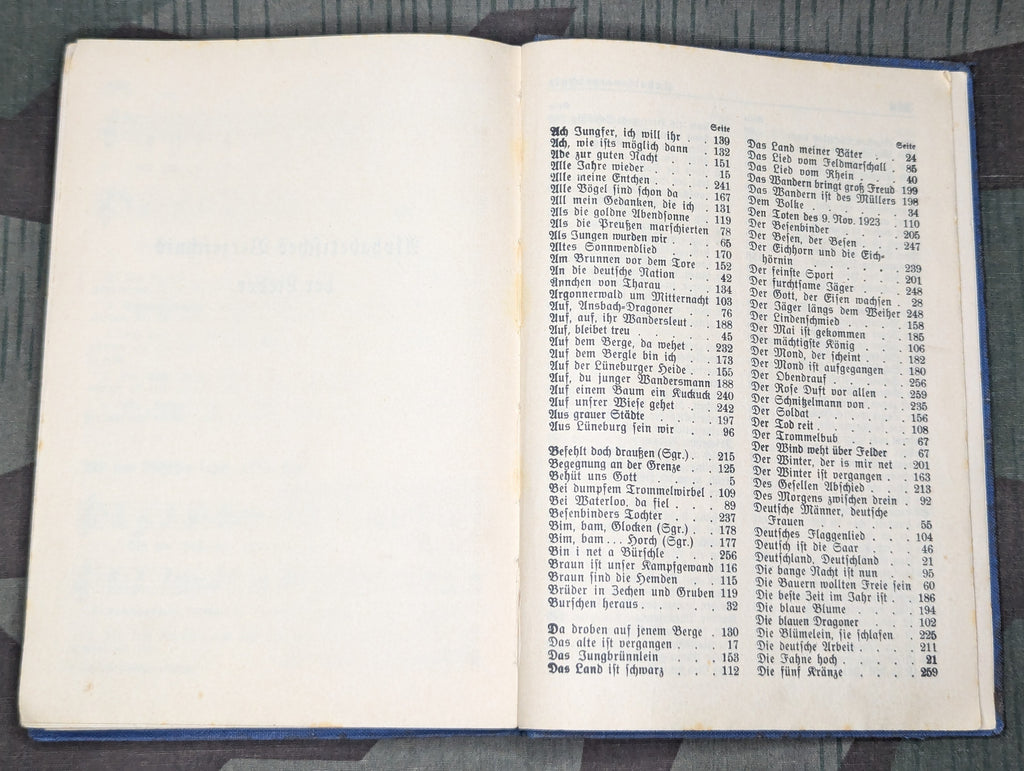 Seite
Ach Jungfer, ich will ihr . . 139
Ach, wie ists möglich dann . . 132
Ade zur guten Nacht . . . 151
Alle Jahre wieder . . . . 15
Alle meine Entchen . . . . 241
Alle Vögel sind schon da . . 167
All mein Gedanken, die ich . 131
Als die goldne Abendsonne . 119
Als die Preußen marschierten 78
Als Jungen wurden wir . . . 65
Altes Sonnwendlied . . . . 170
Am Brunnen vor dem Tore . 152
An die deutsche Nation . . 42
Ännchen von Tharau . . . 134
Argonnerwald um Mitternacht 103
Auf, Ansbach-Dragoner . . 76
Auf, auf, ihr Wandersleut . . 188
Auf, bleibet treu . . . . 45
Auf dem Berge, da wehet . . 232
Auf dem Bergle bin ich . . 173
Auf der Lüneburger Heide . . 155
Auf, du junger Wandersmann 188
Auf einem Baum ein Kuckuck 240
Auf unsrer Wiese gehet . . 242
Aus grauer Städte . . . . 197
Aus Lüneburg sein wir . . . 96
Befehlt doch draußen (Sgr.) . 215
Begegnung an der Grenze . . 125
Behüt uns Gott . . . . . 5
Bei dumpfem Trommelwirbel . 109
Bei Waterloo, da fiel . . . 89
Besenbinders Tochter . . . 237
Bim, bam, Glocken (Sgr.) . . 178
Bim, bam ... Horch (Sgr.) . 177
Bin i net a Bürschle . . . 256
Braun ist unser Kampfgewand 116
Braun sind die Hemden . . 115
Brüder in Zechen und Gruben 119
Burschen heraus . . . . . 32
Da droben auf jenem Berge . 130
Das alte ist vergangen . . . 17
Das Jungbrünnlein . . . . 153
Das Land ist schwarz . . . 112
Seite
Das Land meiner Väter . . 24
Das Lied vom Feldmarschall . 85
Das Lied vom Rhein . . . 40
Das Wandern bringt groß Freud 199
Das Wandern ist des Müllers 198
Dem Volke . . . . . . 34
Den Toten des 9. Nov. 1923 . 110
Der Besenbinder . . . . . 205
Der Besen, der Besen . . . 247
Der Eichhorn und die Eich-
hörnin . . . . . . . 239
Der feinste Sport . . . . 201
Der furchtsame Jäger . . . 248
Der Gott, der Eisen wachsen . 28
Der Jäger längs dem Weiher 248
Der Lindenschmied . . . . 158
Der Mai ist gekommen . . . 185
Der mächtigste König . . . 106
Der Mond, der scheint . . . 182
Der Mond ist aufgegangen . 180
Der Obendrauf . . . . . 256
Der Rose Duft vor allen . . 259
Der Schnitzelmann von . . . 235
Der Soldat . . . . . . 156
Der Tod reit . . . . . . 108
Der Trommelbub . . . . . 67
Der Wind weht über Felder . 67
Der Winter, der is mir net . 201
Der Winter ist vergangen . . 163
Des Gesellen Abschied . . . 213
Des Morgens zwischen drein . 92
Deutsche Männer, deutsche
Frauen . . . . . . . 55
Deutsches Flaggenlied . . . 104
Deutsch ist die Saar . . . 46
Deutschland, Deutschland . . 21
Die bange Nacht ist nun . . 95
Die Bauern wollten Freie sein 60
Die beste Zeit im Jahr ist . . 186
Die blaue Blume . . . . . 194
Die blauen Dragoner . . . 102
Die Blümelein, sie schlafen . 225
Die deutsche Arbeit . . . . 211
Die Fahne hoch . . . . . 21
Die fünf Kränze . . . . . 259